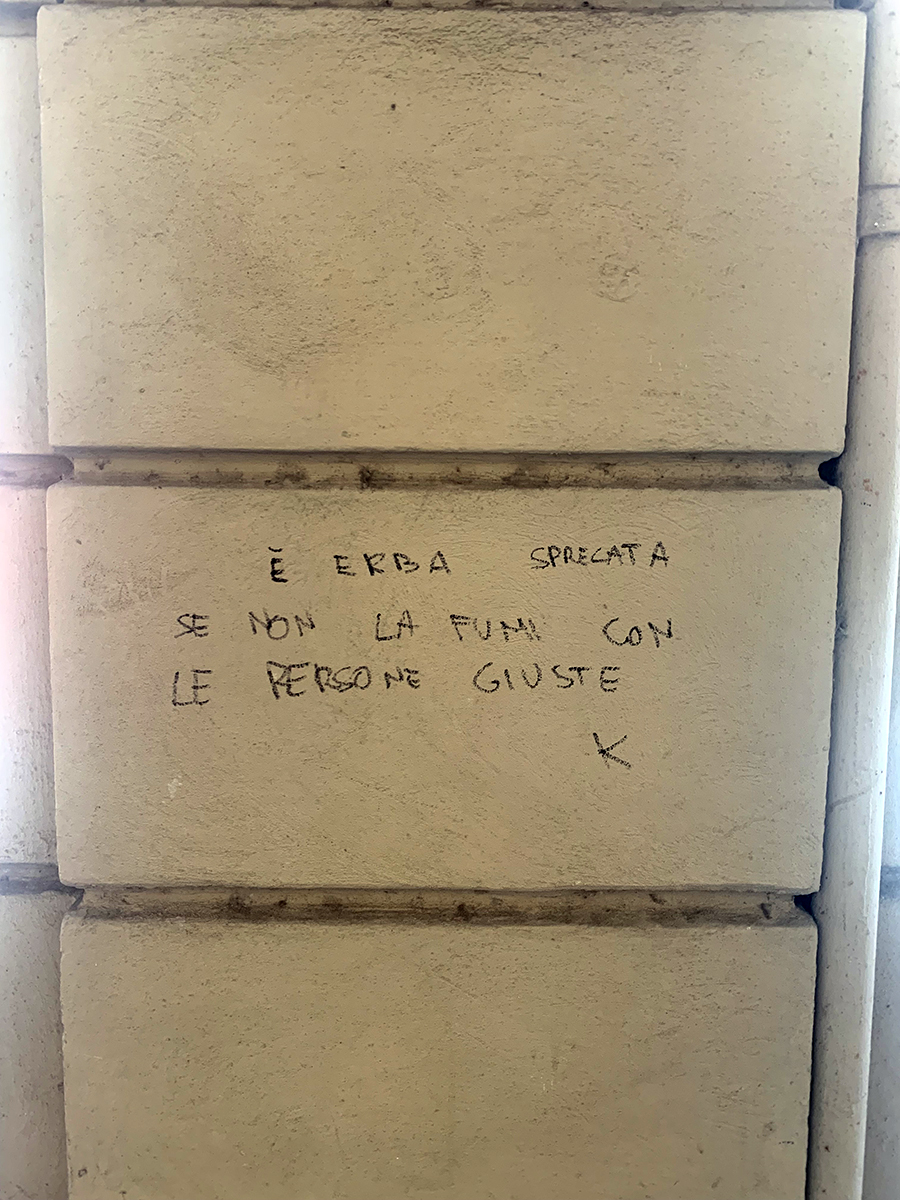 È ERBA SPRECATA
SE NON LA FUMI CON
LE PERSONE GIUSTE
K